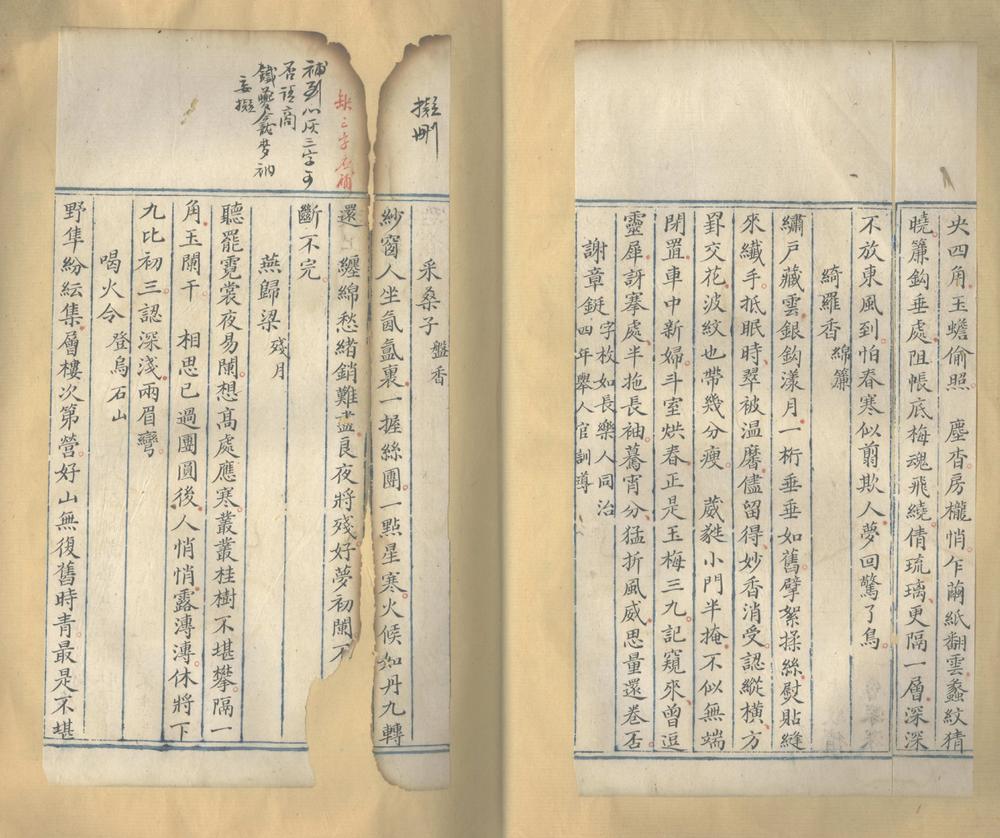 央四角玉蟾偷照　塵杳房櫳悄乍繭紙翻雲蠡紋猜
曉簾鈎垂處阻帳底梅魂飛繞倩琉璃更隔一層深深
不放東風到怕春寒似翦欺人夢回驚了鳥
綺羅香 綿簾
繡戶藏雲銀鈎漾月一桁垂垂如舊擘絮揉絲熨貼縫
來纖手抵眠時翠被温黁儘留得妙香消受認縱橫方
罫交花波紋也帶幾分瘦　葳蕤小門半掩不似無端
閉置車中新婦斗室烘春正是玉梅三九記窺來曾逗
靈犀訝搴處半拖長袖驀宵分猛折風威思量還卷否
謝章鋌 字枚如長樂人同治
四年舉人官訓導
擬刪
采桑子 盤香
紗窗人坐氤氳裏一握絲團一點星寒火候如丹九轉
缺三字
還　纏綿愁緒銷難盡良夜將殘好夢初闌不
補到心灰三字可
斷不完
否請商
妄擬
燕歸梁 殘月
聽罷霓裳夜易闌想高處應寒叢叢桂樹不堪攀隔一
角玉闌干　相思已過團圓後人悄悄露漙漙休將下
九比初三認深淺兩眉彎
喝火令 登烏石山
野隼紛紜集層樓次第營好山無復舊時青最是不堪